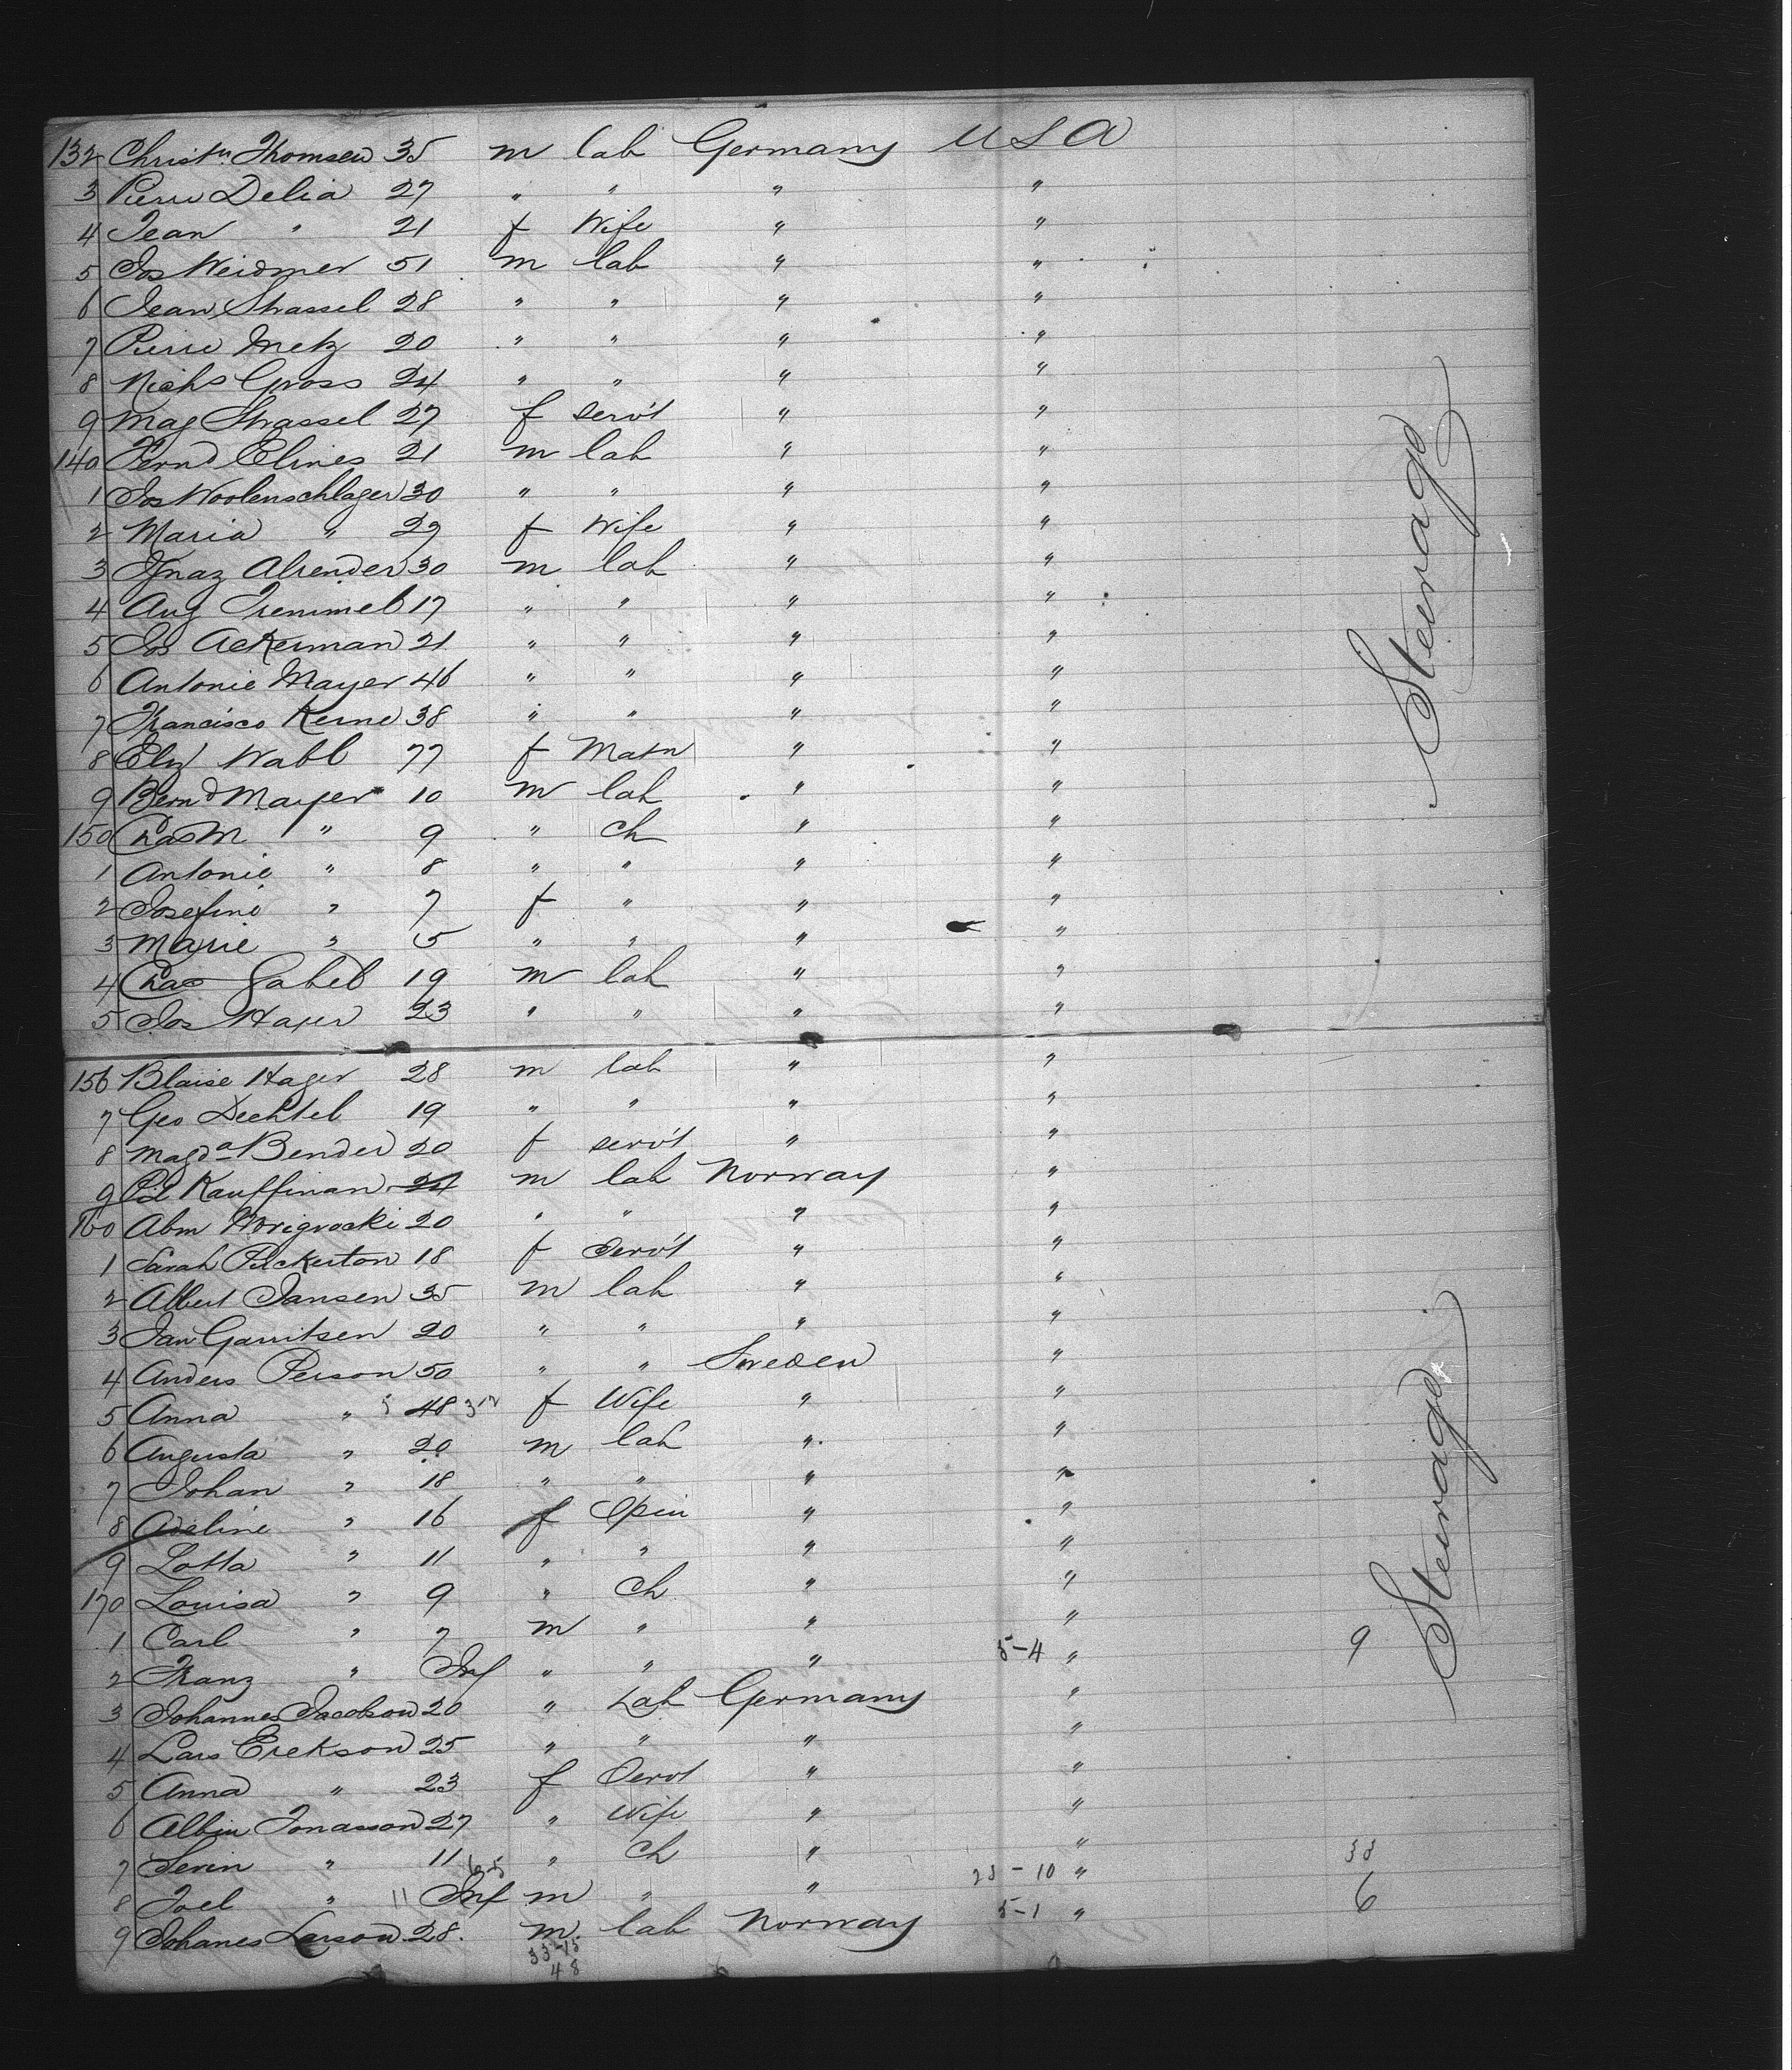 132 Christn Thomsen 35 m lab Germany USA
3 Pierre Delia 27 " " " "
4 Jean " 21 f Wife " "
5 Jos Weidmer 51 m lab " "
6 Jean Strassel 28 " " " "
7 Pierre Metz 20 " " " "
8 Nichs Gross 24 " " " "
9 Mag Strassel 27 f servt " "
140 Fernd Elines 21 m lab " "
1 Jos Woolenschlager 30 " " " "
2 Maria " 29 f Wife " "
3 Ignaz Alrender 30 m lab " "
4 Aug Tremmel 17 " " " "
5 Jos Ackerman 21 " " " "
6 Antonie Mayer 46 " " " "
7 Francisco Kerne 38 " " " "
8 Eliz Wabl 77 f Matn " "
9 Bernd Mayer 10 m lab " "
150 Chas M " 9 " ch " "
1 Antonie " 8 " " " "
2 Josefine " 7 f " " "
3 Marie " 5 " " " "
4 Chas Gabel 19 m lab " "
5 Jos Hager 23 " " " "
Steerage
156 Blaise Hager 28 m lab " "
7 Geo Dechtel 19 " " " "
8 Magda Bender 20 f servt " "
9 Kauffman 24 m lab Norway "
160 Abm 20 " " " "
1 Sarah Pickerton 18 f Servt " "
2 Albert Jansen 35 m lab " "
3 Jan Garritsen 20 " " " "
4 Anders Person 50 " " Sweden "
5 Anna " 48 f Wife " "
6 Augusta " 20 m lab " "
7 Johan " 18 " " " "
8 Adeline " 16 f Spin " "
9 Lotta " 11 " " " "
170 Louisa " 9 " Ch " "
1 Carl " 7 m " " "
2 Franz " Inf " " " 5-4 " 9
3 Johannes Jacobson 20 " Lab Germany "
4 Lars Erekson 25 " " " "
5 Anna " 23 f Servt " "
6 Albin Jonasson 27 " Wife " "
7 Serin " 11 " Ch " " 33
8 Joel " 11 Inf m " " 23-10 " 6
9 Johanes Larson 28. m lab Norway 5-1 "
33-15
48
Steerage